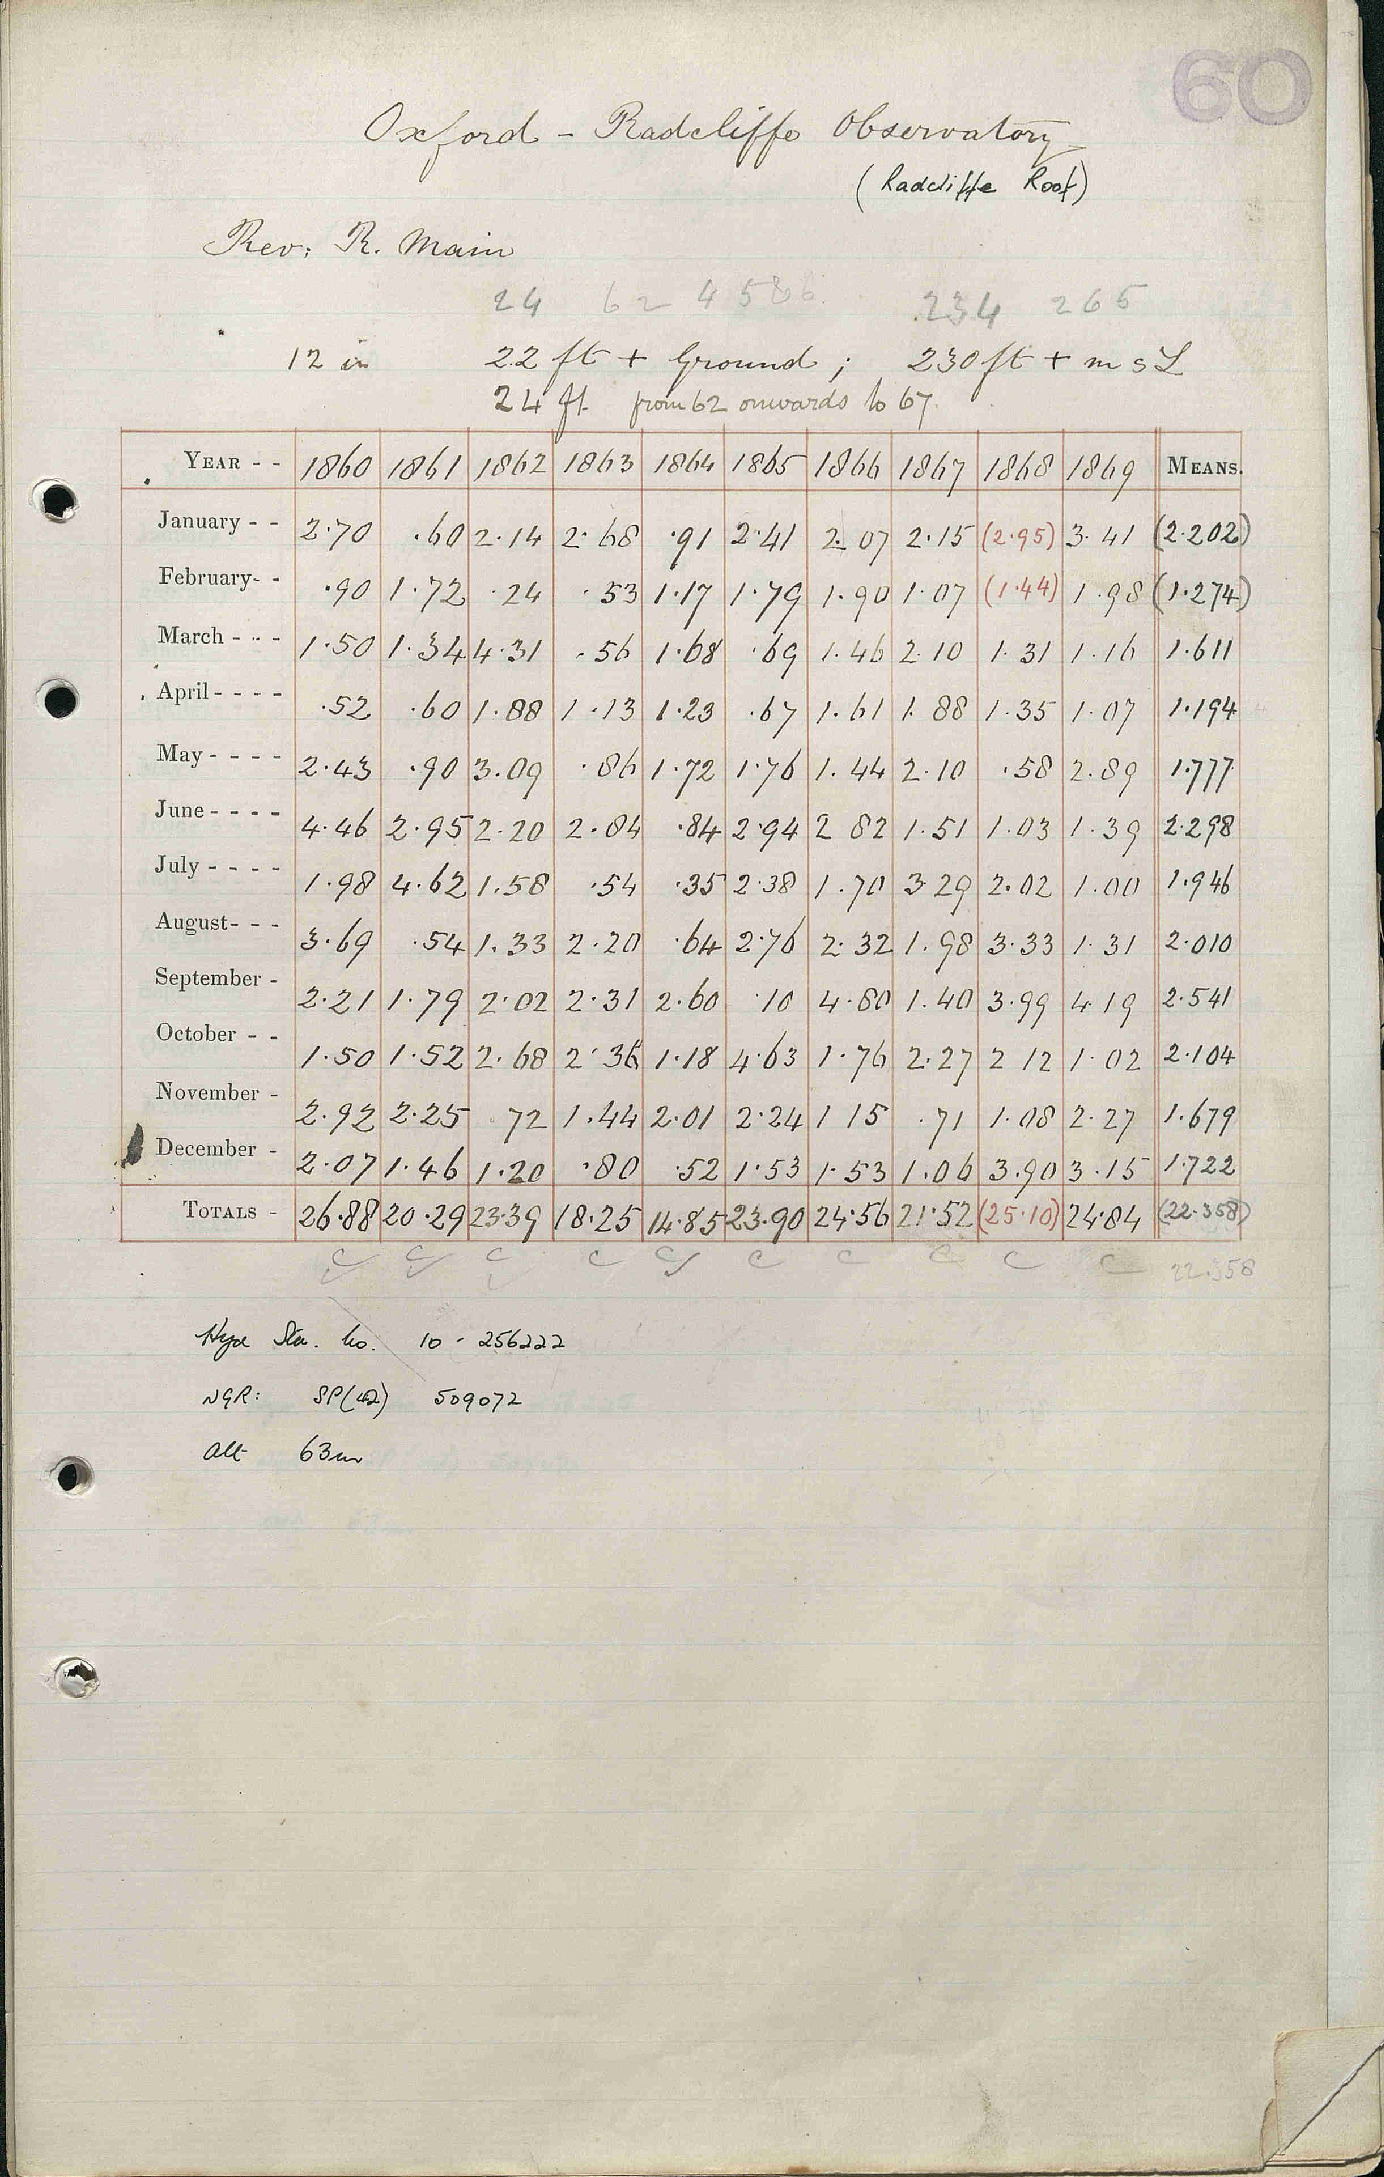 60
Oxford - Radcliffe Observatory
(Radcliffe Roof)
Rev: R. Main
24 62 4586 234 265
12 in 22 ft + Ground ; 230 ft + m s L
24 ft. from 62 onwards to 67
YEAR - - 1860 1861 1862 1863 1864 1865 1866 1867 1868 1869 MEANS.
January - - 2.70 .60 2.14 2.68 .91 2.41 2.07 2.15 (2.95) 3.41 (2.202)
February- - .90 1.72 .24 .53 1.17 1.79 1.90 1.07 (1.44) 1.98 (1.274)
March - - - 1.50 1.34 4.31 .56 1.68 .69 1.46 2.10 1.31 1.16 1.611
April - - - - .52 .60 1.88 1.13 1.23 .67 1.61 1.88 1.35 1.07 1.194
May - - - - 2.43 .90 3.09 .86 1.72 1.76 1.44 2.10 .58 2.89 1.777
June - - - - 4.46 2.95 2.20 2.84 .84 2.94 2 82 1.51 1.03 1.39 2.298
July - - - - 1.98 4.62 1.58 .54 .35 2.38 1.70 3 29 2.02 1.00 1.946
August- - - 3.69 .54 1.33 2.20 .64 2.76 2.32 1.98 3.33 1.31 2.010
September - 2.21 1.79 2.02 2.31 2.60 .10 4.80 1.40 3.99 4.19 2.541
October - - 1.50 1.52 2.68 2.36 1.18 4.63 1.76 2.27 2 12 1.02 2.104
November - 2.92 2.25 .72 1.44 2.01 2.24 1 15 .71 1.08 2.27 1.679
December - 2.07 1.46 1.20 .80 .52 1.53 1.53 1.06 3.90 3.15 1.722
TOTALS - 26.88 20.29 23.39 18.25 14.85 23.90 24.56 21.52 (25.10) 24.84 (22.358)
c c c c c c c c c c 22.358
Hyd Sta. No. 10 - 256222
NGR: SP(42) 509072
Alt 63m